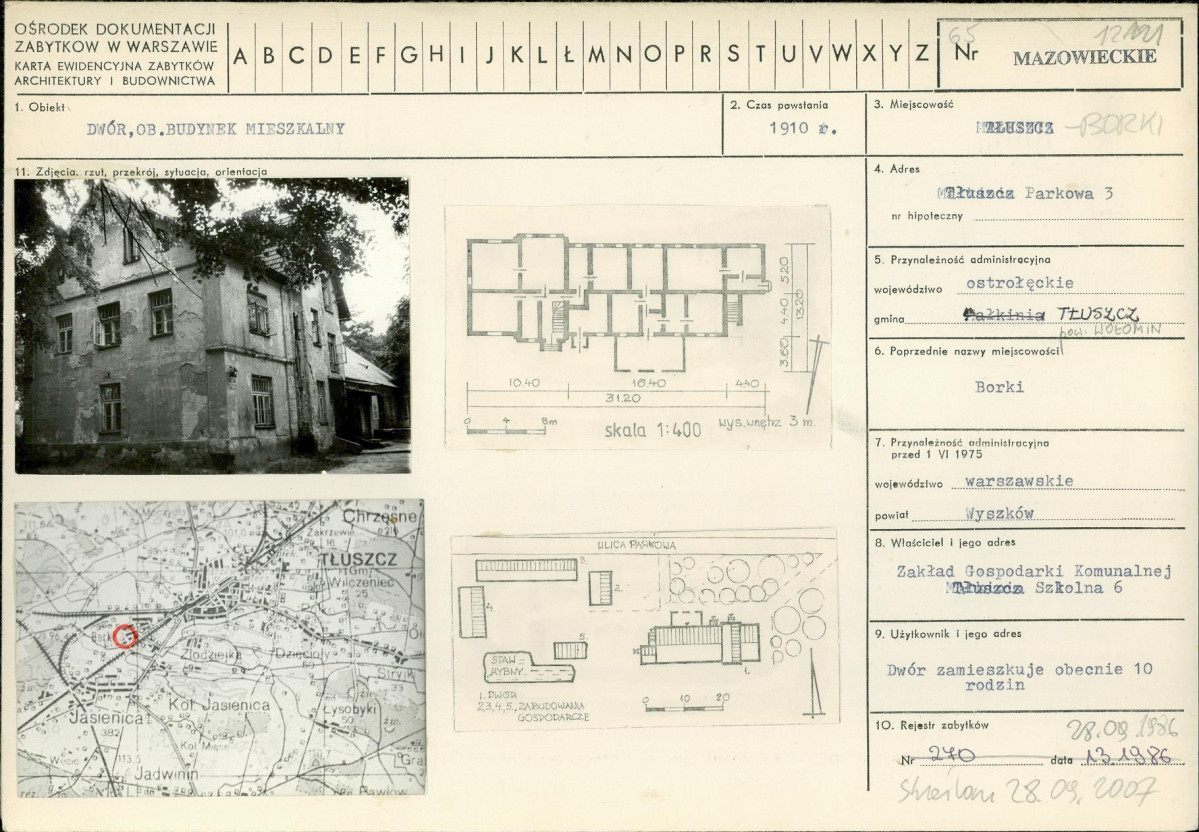 OŚRODEK DOKUMENTACJI
ZABYTKÓW W WARSZAWIE
KARTA EWIDENCYJNA ZABYTKÓW
ARCHITEKTURY I BUDOWNICTWA
A B C D E F G H I J K L Ł M N O P R S T U V W X Y Z
65
Nr
MAZOWIECKIE
1. Obiekt
DWÓR,OB.BUDYNEK MIESZKALNY
2. Czas powstania
1910 r.
3. Miejscowość
TŁUSZCZ -BORKI
4. Adres
Tłuszcz Parkowa 3
nr hipoteczny
5. Przynależność administracyjna
województwo ostrołęckie
gmina Małkinia TŁUSZCZ
pow. WOŁOMIN
6. Poprzednie nazwy miejscowości
Borki
7. Przynależność administracyjna
przed 1 VI 1975
województwo warszawskie
powiat Wyszków
8. Właściciel i jego adres
Zakład Gospodarki Komunalnej
Tłuszcz Szkolna 6
9. Użytkownik i jego adres
Dwór zamieszkuje obecnie 10
rodzin
10. Rejestr zabytków
28.09.1986
Nr 270 data 13.1986
28.09.2007
11. Zdjęcia, rzut, przekrój, sytuacja, orientacja
5.20
4.40
13.20
3.60
10.40 16.40 4.40
31.20
0 4 8m
skala 1:400
wys. wnętrz 3 m.
Chrzęsne
Zakrzewie
TŁUSZCZ
Wilczeniec
25
Borki
Złodziejka
Dzięcioły
59
33
Kol Jasienica
Łysobyki
50
Jasienica
382
113,5
Węcic
Jadwinin
ULICA PARKOWA
3.
2.
4.
5
STAW
RYBNY
1.
1. DWÓR
2,3,4,5, ZABUDOWANIA
GOSPODARCZE
0 10 20